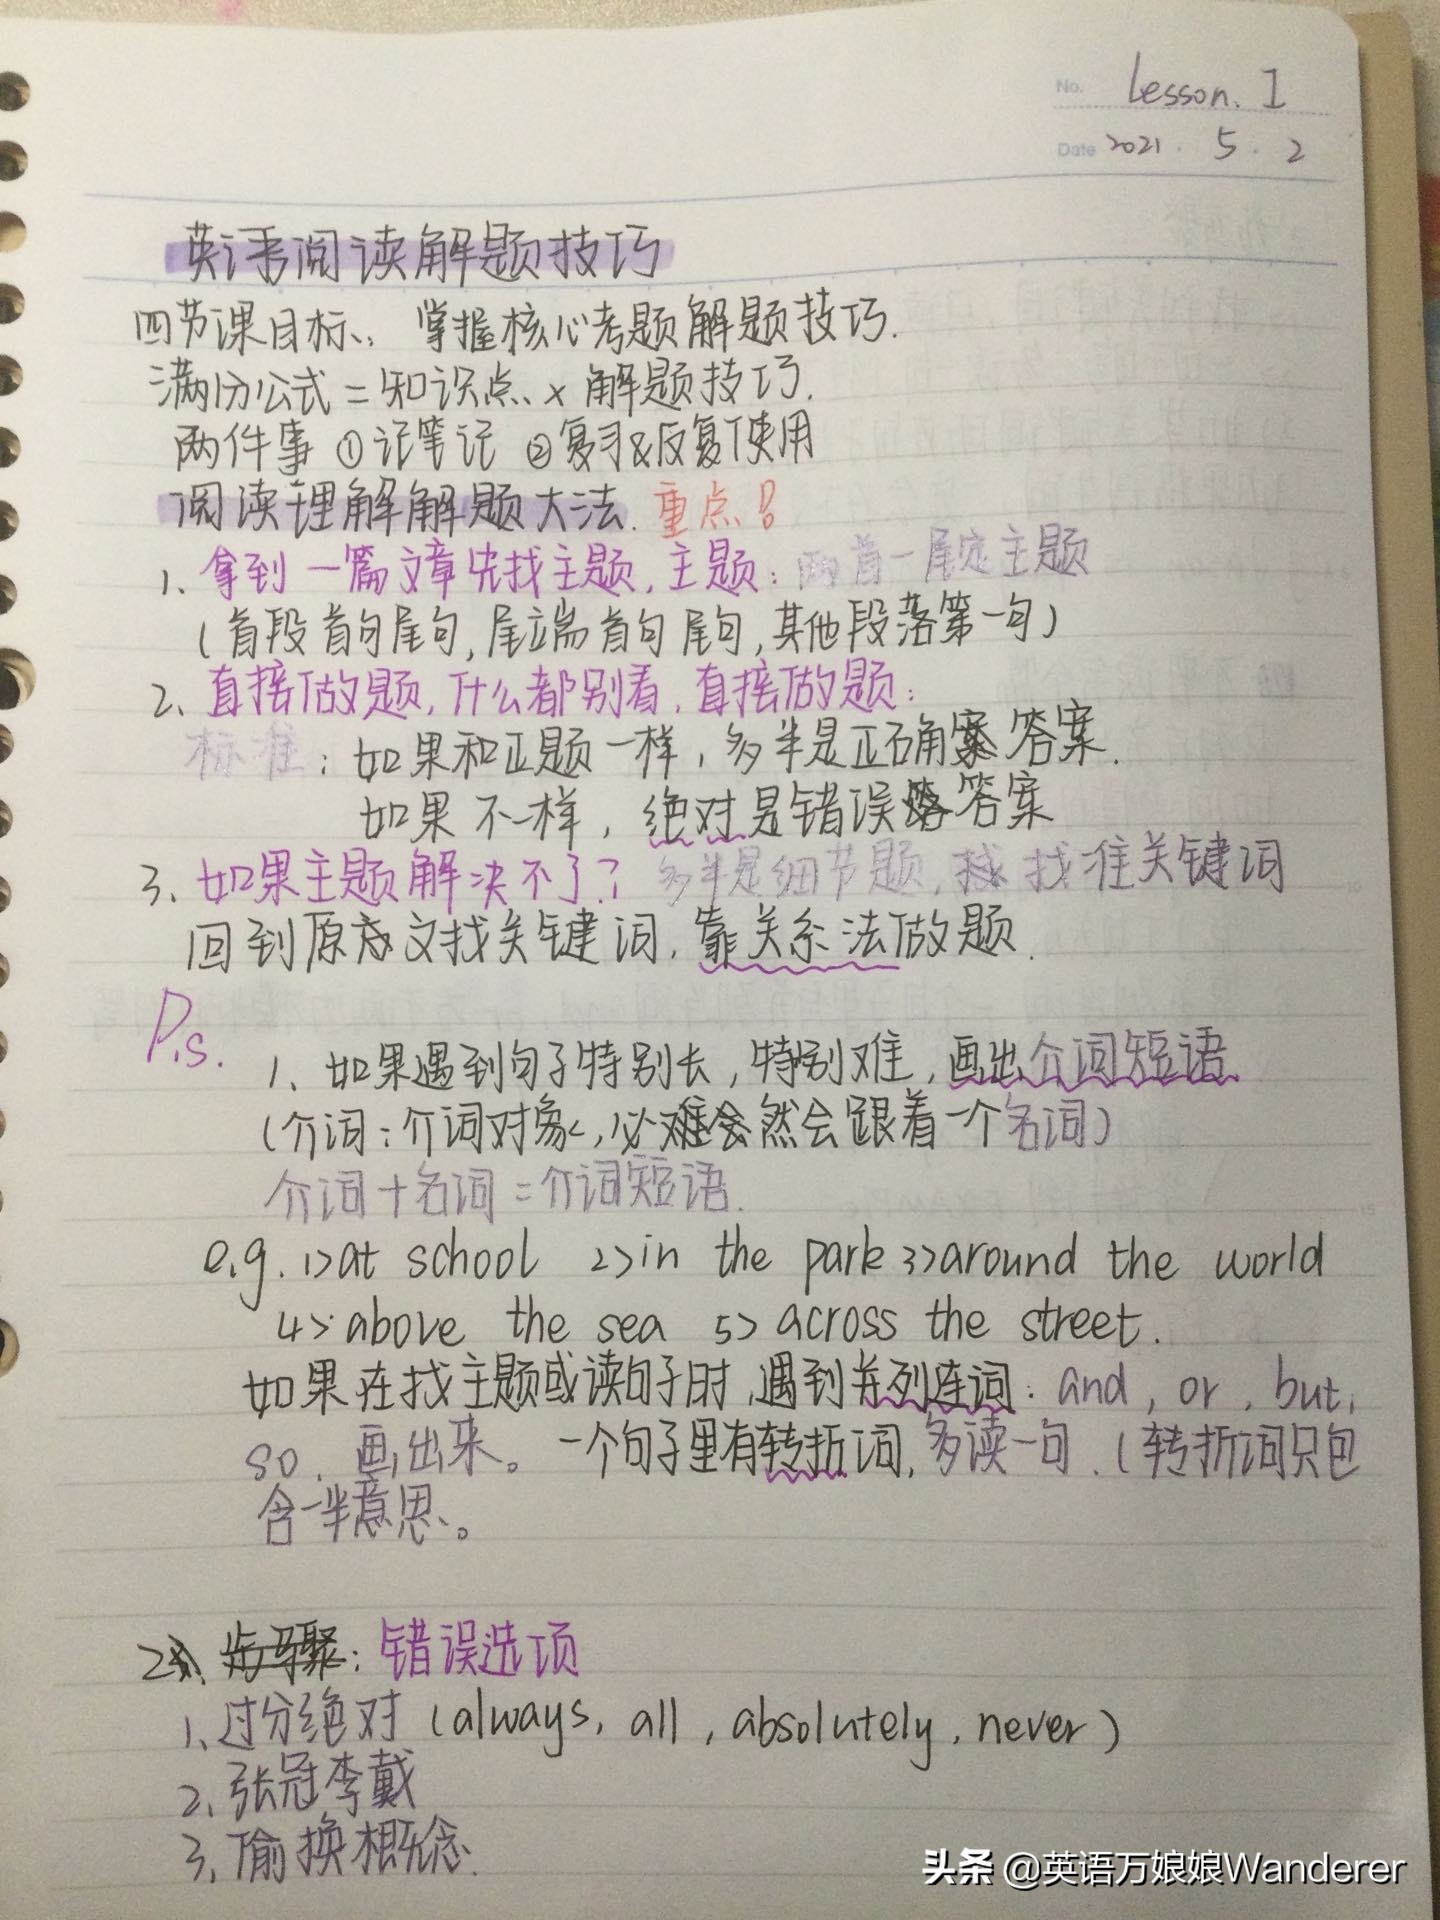 No. Lesson. I
Date 2021 . 5 . 2
英语阅读解题技巧
四节课目标: 掌握核心考题解题技巧.
满分公式=知识点×解题技巧.
两件事 ①记笔记 ②复习&反复使用
阅读理解解题大法. 重点!
1、拿到一篇文章先找主题, 主题: 两首一尾定主题
(首段首句尾句, 尾端首句尾句, 其他段落第一句)
2、直接做题, 什么都别看, 直接做题:
标准: 如果和正题一样, 多半是正确答案.
如果不一样, 绝对是错误答案
3、如果主题解决不了? 多半是细节题, 找准关键词
回到原文找关键词, 靠关系法做题.
P.s.
1、如果遇到句子特别长, 特别难, 画出介词短语
(介词: 介词对象, 必然会跟着一个名词)
介词+名词=介词短语.
e.g. 1>at school 2>in the park 3>around the world
4>above the sea 5>across the street.
如果在找主题或读句子时, 遇到并列连词: and, or, but,
so, 画出来。一个句子里有转折词, 多读一句. (转折词只包
含一半意思。
2、步骤: 错误选项
1、过分绝对 (always, all, absolutely, never)
2、张冠李戴
3、偷换概念.
头条 @英语万娘娘Wanderer